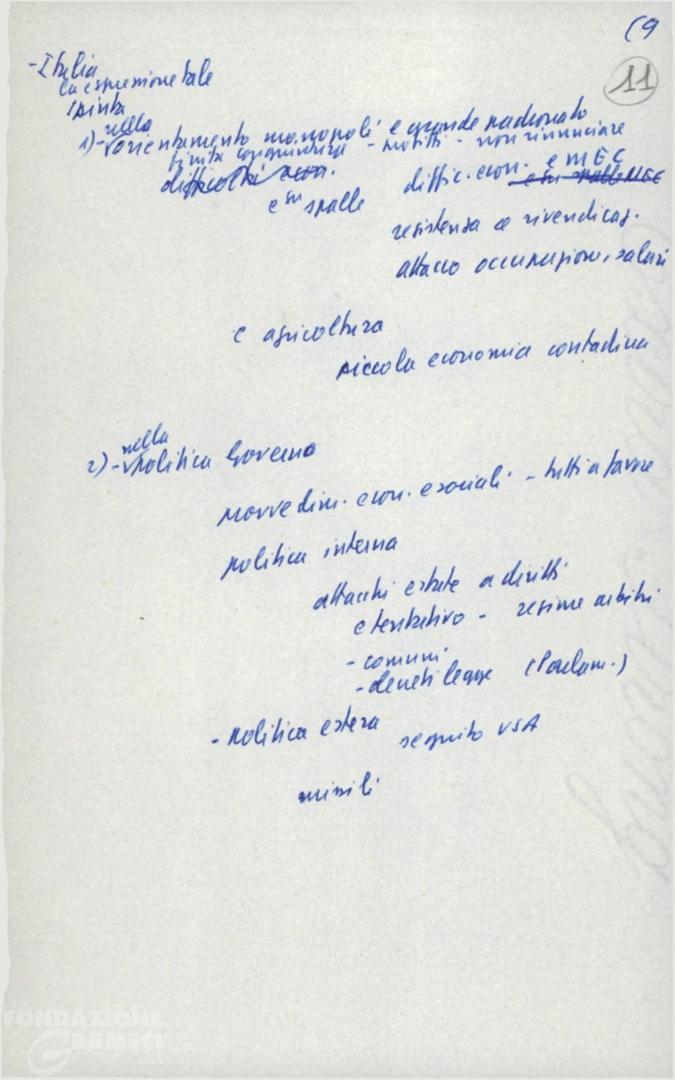 (9
11
- Italia
la espressione tale
spinta
nella
1) - orientamento monopoli e grande padronato
finita congiuntura - profitti - non rinunciare
difficoltà econ.
diffic. econ. e MEC
e su spalle MEC
e su spalle
resistenza a rivendicaz.
attacco occupazione, salari
e agricoltura
piccola economia contadina
nella
2) - politica Governo
provvedim. econ. e sociali - tutti a favore
politica interna
attacchi estate a diritti
e tentativo - regime arbitri
- comuni
- decreti legge (Parlam.)
- politica estera
seguito USA
missili
FONDAZIONE
GRAMSCI